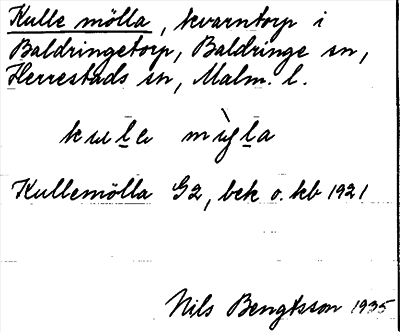 Kulle mölla, kvarntorp i
Baldringetorp, Baldringe sn,
Herrestads sn, Malm. l.
Kullemölla G2, bek o. kb 1921
Nils Bengtsson 1935